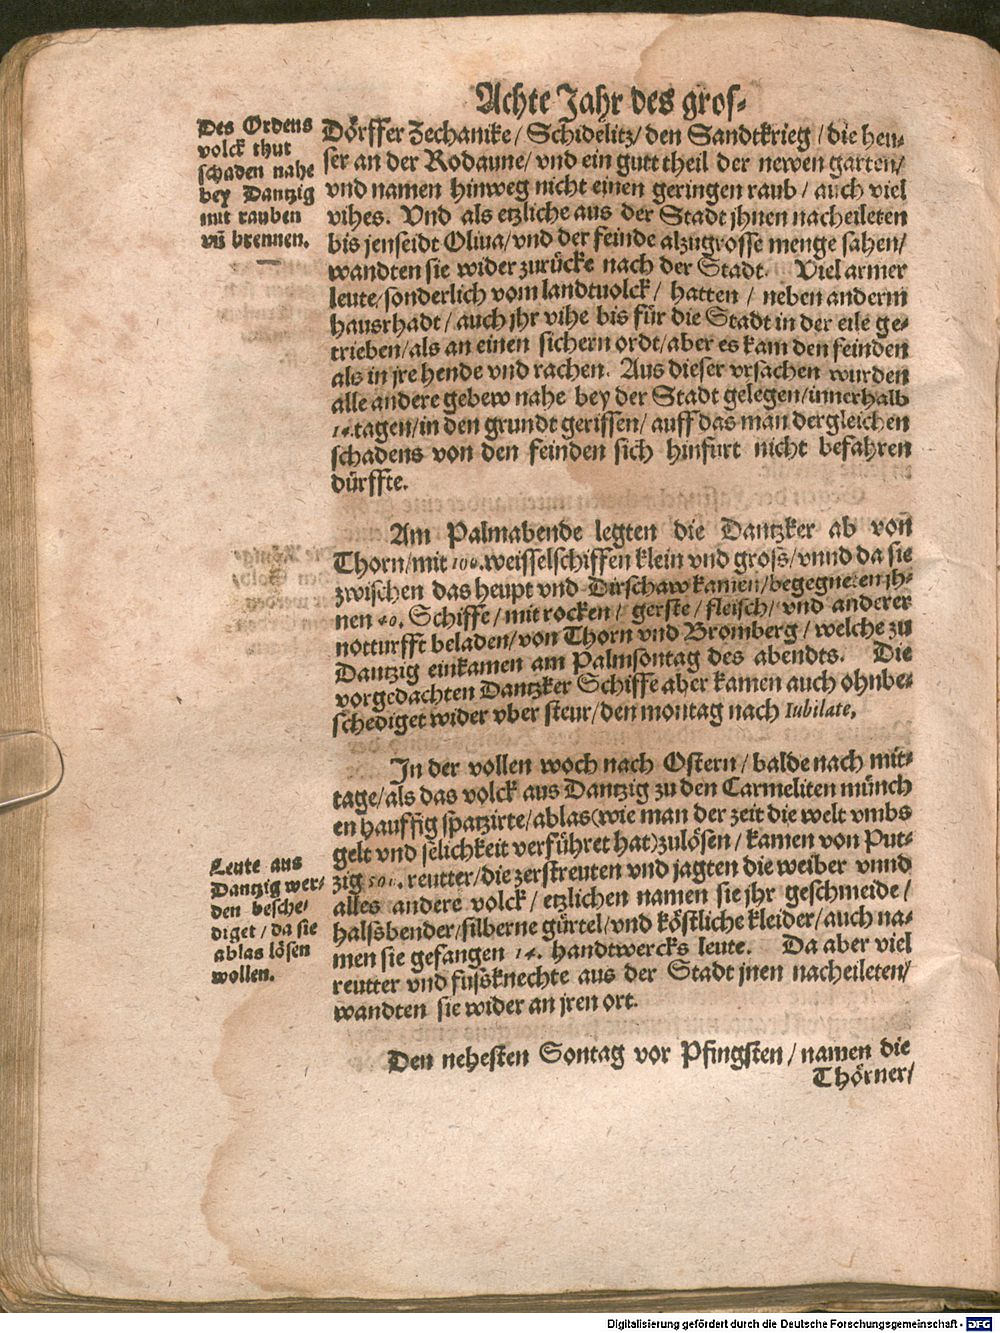 Achte Jahr des gros-
Des Ordens
volck thut
schaden nahe
bey Dantzig
mit rauben
vñ brennen.
Dörffer Zechanike/ Schidelitz/ den Sandtkrieg / die heu-
ser an der Rodaune/ vnd ein gutt theil der newen garten/
vnd namen hinweg nicht einen geringen raub / auch viel
vihes. Vnd als etzliche aus der Stadt jhnen nacheileten
bis jenseidt Oliua/vnd der feinde alzugrosse menge sahen/
wandten sie wider zurücke nach der Stadt. Viel armer
leute/sonderlich vom landtuolck/ hatten / neben anderm
hausrhadt / auch jhr vihe bis für die Stadt in der eile ge-
trieben/als an einen sichern ordt/aber es kam den feinden
als in jre hende vnd rachen. Aus dieser vrsachen wurden
alle andere gebew nahe bey der Stadt gelegen/innerhalb
14.tagen/in den grundt gerissen/ auff das man dergleichen
schadens von den feinden sich hinfurt nicht befahren
dürffte.
Am Palmabende legten die Dantzker ab von
Thorn/mit 100.weisselschiffen klein vnd gross/vnnd da sie
zwischen das heupt vnd Dirschaw kamen/begegneten jh-
nen 40. Schiffe/ mit rocken/ gerste/ fleisch/ vnd anderer
notturfft beladen/von Thorn vnd Bromberg / welche zu
Dantzig einkamen am Palmsontag des abendts. Die
vorgedachten Dantzker Schiffe aber kamen auch ohnbe-
schediget wider vber steur/den montag nach Iubilate,
In der vollen woch nach Ostern/ balde nach mit-
tage/als das volck aus Dantzig zu den Carmeliten münch
en hauffig spatzirte/ablas(wie man der zeit die welt vmbs
gelt vnd selichkeit verführet hat)zulösen / kamen von Put-
zig 500. reutter/die zerstreuten vnd jagten die weiber vnnd
alles andere volck/ etzlichen namen sie jhr geschmeide/
halsbender/silberne gürtel/vnd köstliche kleider/auch na-
men sie gefangen 14. handtwercks leute. Da aber viel
reutter vnd fussknechte aus der Stadt jnen nacheileten/
wandten sie wider an jren ort.
Leute aus
Dantzig wer-
den besche-
diget / da sie
ablas lösen
wollen.
Den nehesten Sontag vor Pfingsten / namen die
Thörner/
Digitalisierung gefördert durch die Deutsche Forschungsgemeinschaft - DFG